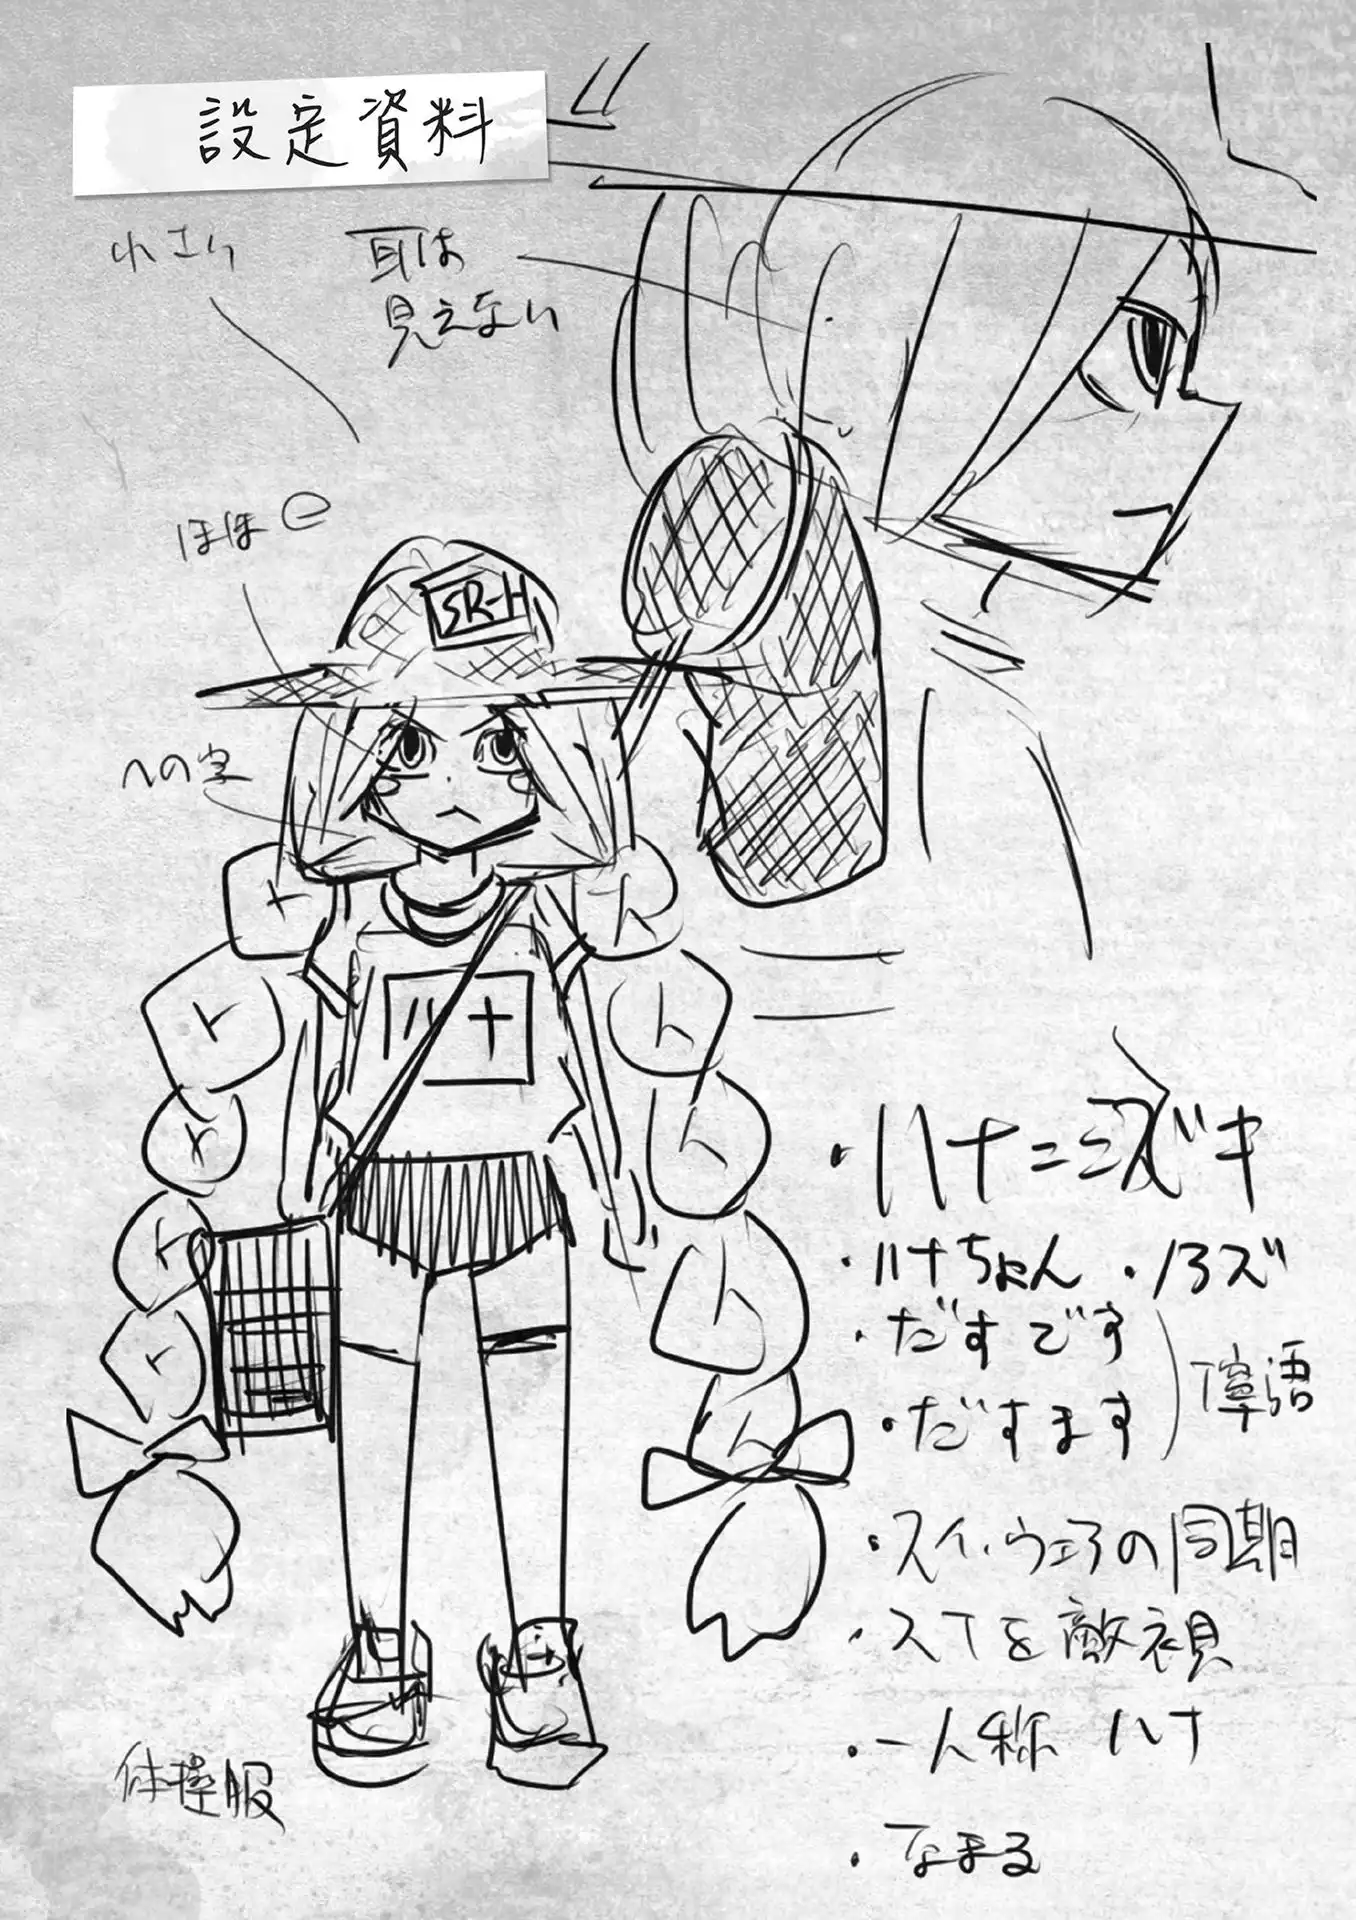 設定資料
耳は
見えない
ほほ
への字
SR-H
ハナ
・ハナ=ミズキ
・ハナちょん
・だすです
・だすます
・スイ、ウェアの同期
・スTを敵視
・一人称 ハナ
・なまる
体操服